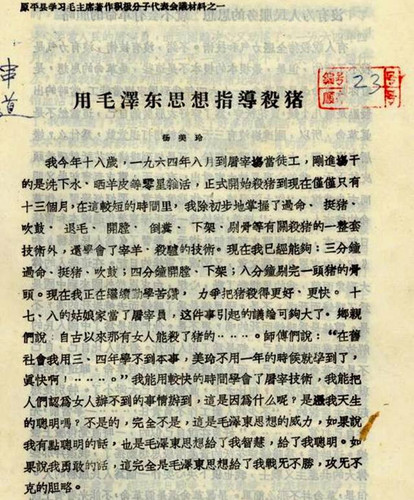 原平县学习毛主席著作积极分子代表会議材料之一
23
用毛澤东思想指导殺猪
楊美玲
我今年十八歲，一九六四年八月到屠宰場當徒工，剛進場干
的是洗下水、晒羊皮等零星雜活，正式開始殺猪到現在僅僅只有
十三個月，在這較短的時間里，我除初步地掌握了过命、挺猪、
吹鼓、退毛、開膛、倒糞、下架、剔骨等有關殺猪的一整套
技術外，还學會了宰羊、殺驢的技術。現在我已經能夠：三分鐘
过命、挺猪、吹鼓；四分鐘開膛、下架；八分鐘剔完一頭猪的骨
頭。現在我正在繼續勤學苦鑽，力爭把猪殺得更好、更快。十
七、八的姑娘家當了屠宰員，这件事引起的議論可夠大了。鄉親
們說：自古以來那有女人能殺了猪的……。師傅們說：“在舊
社會我用三、四年學不到本事，美玲不用一年的時候就學到了，
真快啊！……。”我能用較快的時間學會了屠宰技術，我能把
人們認爲女人辦不到的事情辦到，这是因爲什么呢？是邀我天生
的聰明嗎？不是的，完全不是，這是毛澤東思想的威力，如果說
我有點聰明的話，也是毛澤東思想給了我智慧，給了我聰明。如
果說我勇敢的話，這完全是毛澤東思想給了我戰无不勝，攻无不
克的胆略。